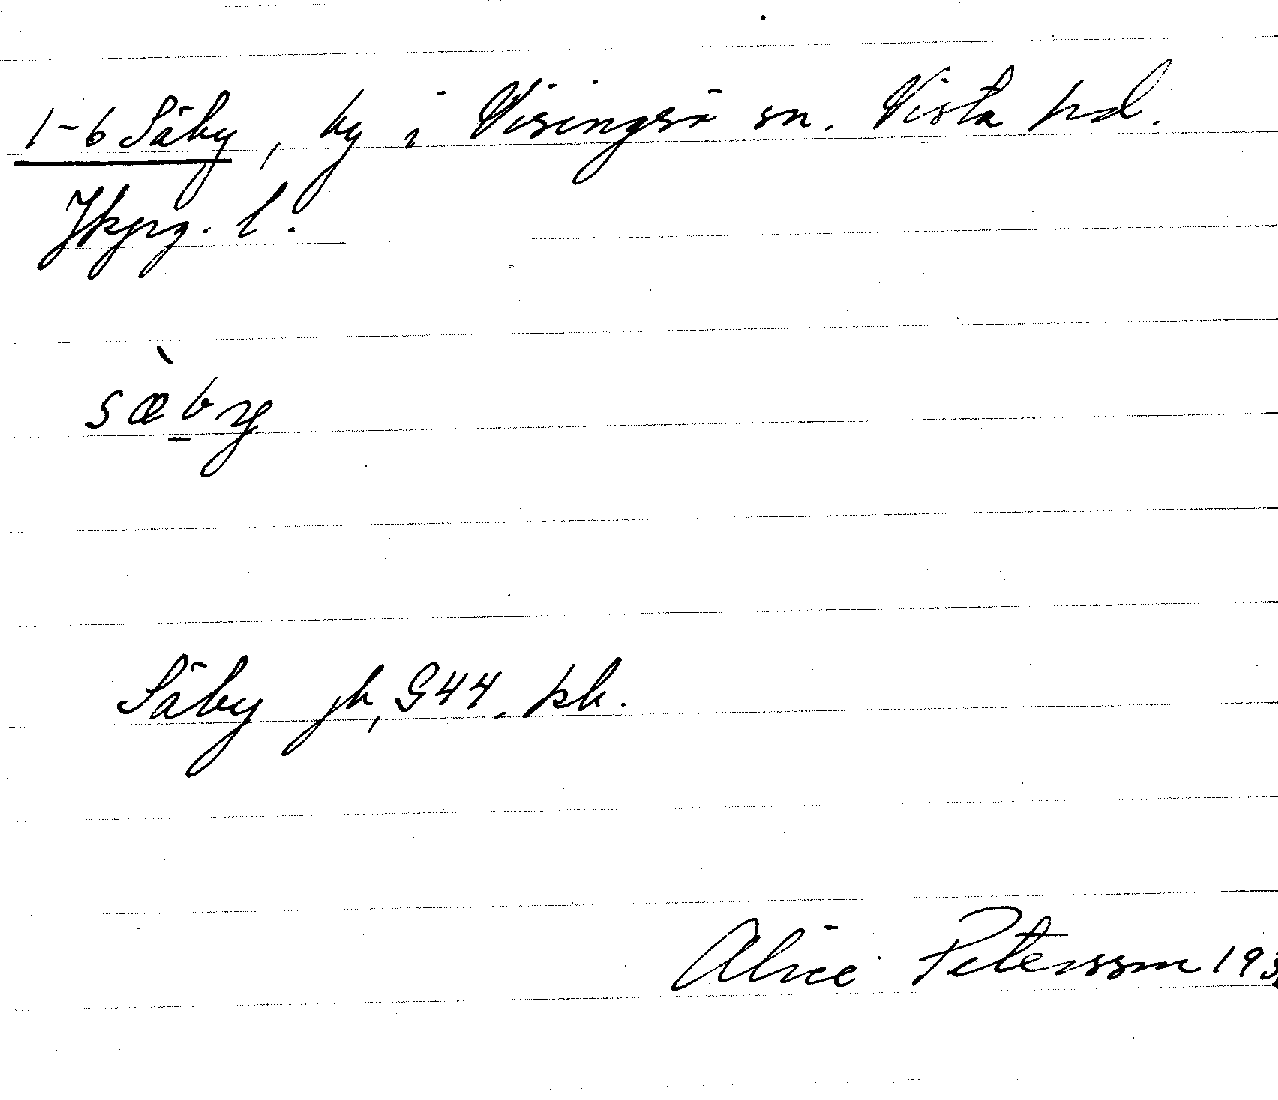 1-6 Säby, by i Visingsö sn. Vista hd.
Jkpg. l.
sæ̀by
Säby jb, 944. kb.
Alice Petersson 193